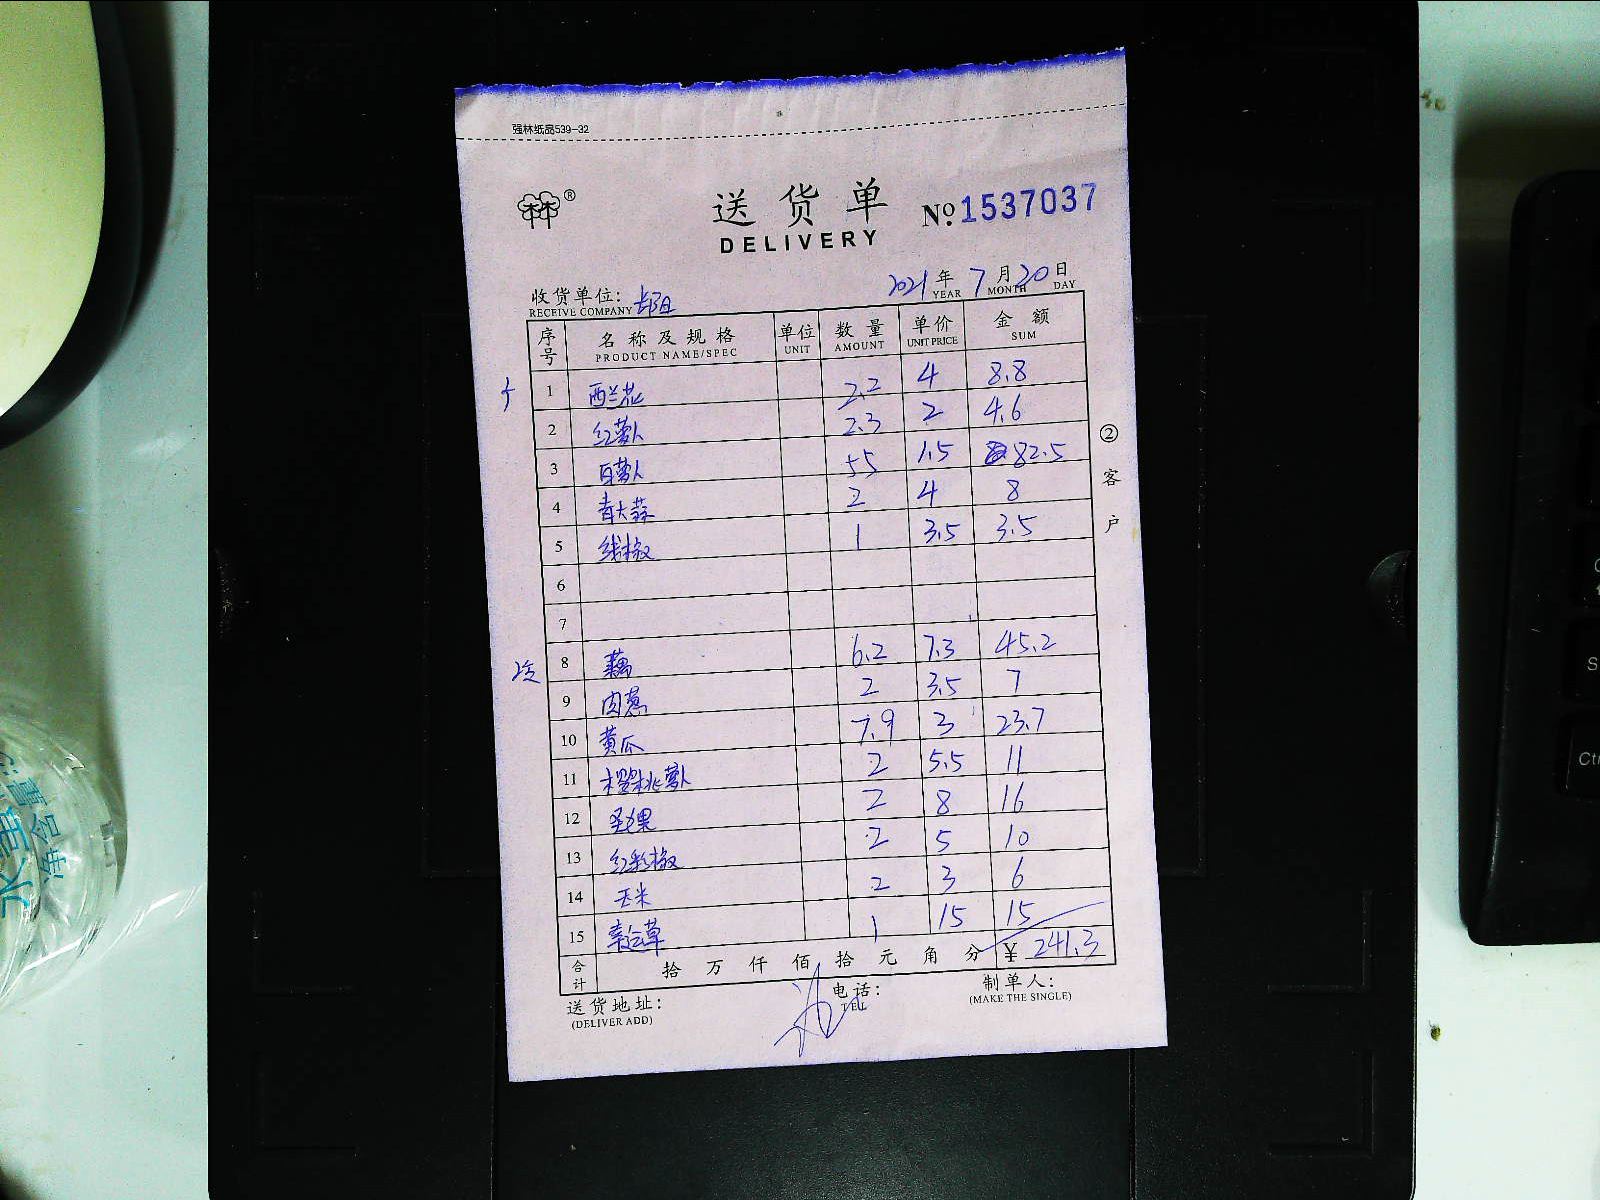 强林纸品539-32
林®
送货单 No.1537037
DELIVERY
2021年7月20日
YEAR MONTH DAY
收货单位:
RECEIVE COMPANY
序号 名称及规格 单位 数量 单价 金额
PRODUCT NAME/SPEC UNIT AMOUNT UNIT PRICE SUM
1 西兰花 2.2 4 8.8
2 红萝卜 2.3 2 4.6
3 白萝卜 55 1.5 82.5
4 青大蒜 2 4 8
5 线椒 1 3.5 3.5
6
7
8 藕 6.2 7.3 45.2
9 肉葱 2 3.5 7
10 黄瓜 7.9 3 23.7
11 樱桃萝卜 2 5.5 11
12 圣女果 2 8 16
13 红彩椒 2 5 10
14 玉米 2 3 6
15 草 1 15 15
合计 拾万仟佰拾元角分 ¥ 241.3
送货地址: 电话: 制单人:
(DELIVER ADD) TEL (MAKE THE SINGLE)
②客户
水重量
净含
Ctr